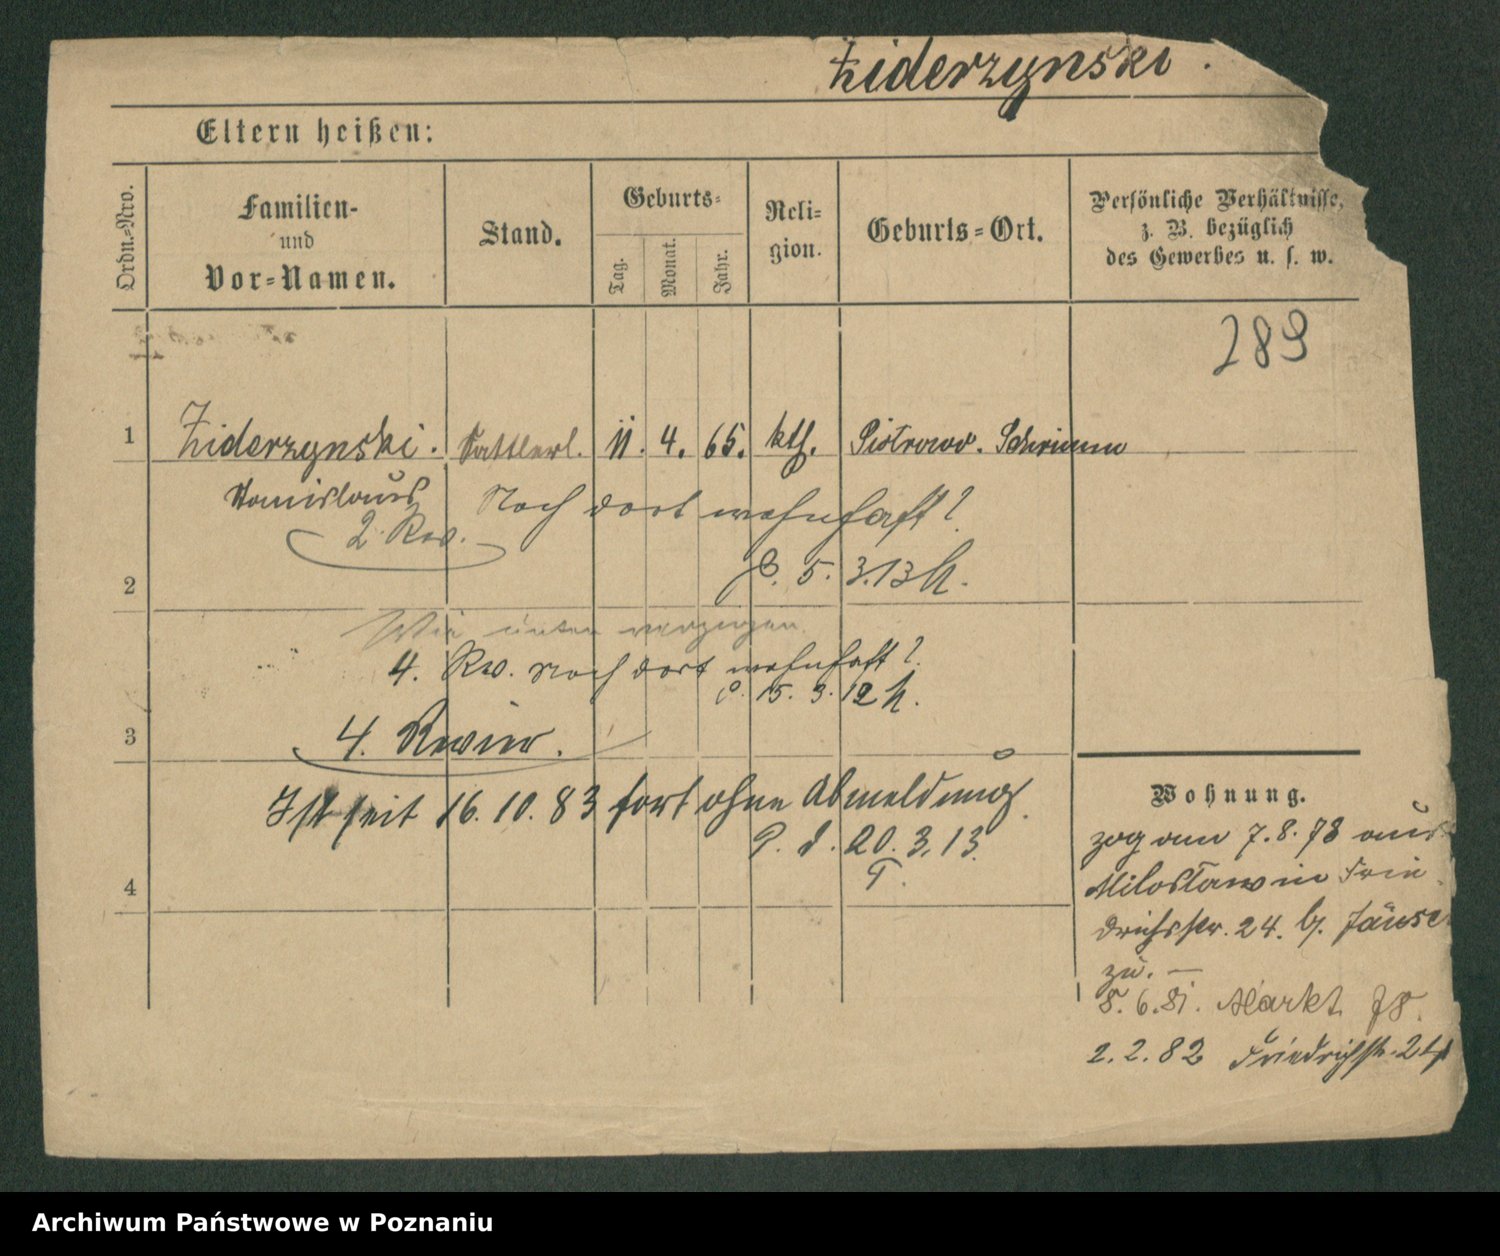 Ziderzynski.
Eltern heißen:
Ordn.-Nro.
Familien-
und
Vor-Namen.
Stand.
Geburts-
Tag.
Monat.
Jahr.
Reli-
gion.
Geburts-Ort.
Persönliche Verhältnisse,
z. B. bezüglich
des Gewerbes u. s. w.
289
1 Ziderzynski. Sattlerl. 11. 4. 65. kth. Piotrowo. Schrimm
Stanislaus
2 Rev.
Noch dort wohnhaft?
P. 5. 3. 13 h.
2
Wie unten verzogen
4. Rev. noch dort wohnhaft?
P. 15. 3. 12 h.
3
4. Revier.
Ist seit 16. 10. 83 fort ohne Abmeldung.
P. d. 20. 3. 13.
4
Wohnung.
zog am 7. 8. 78 aus
Miloslaw in Frie-
drichstr. 24. b.
zu. —
8. 6. 81. Markt 78.
2. 2. 82 Friedrichstr. 24
Archiwum Państwowe w Poznaniu